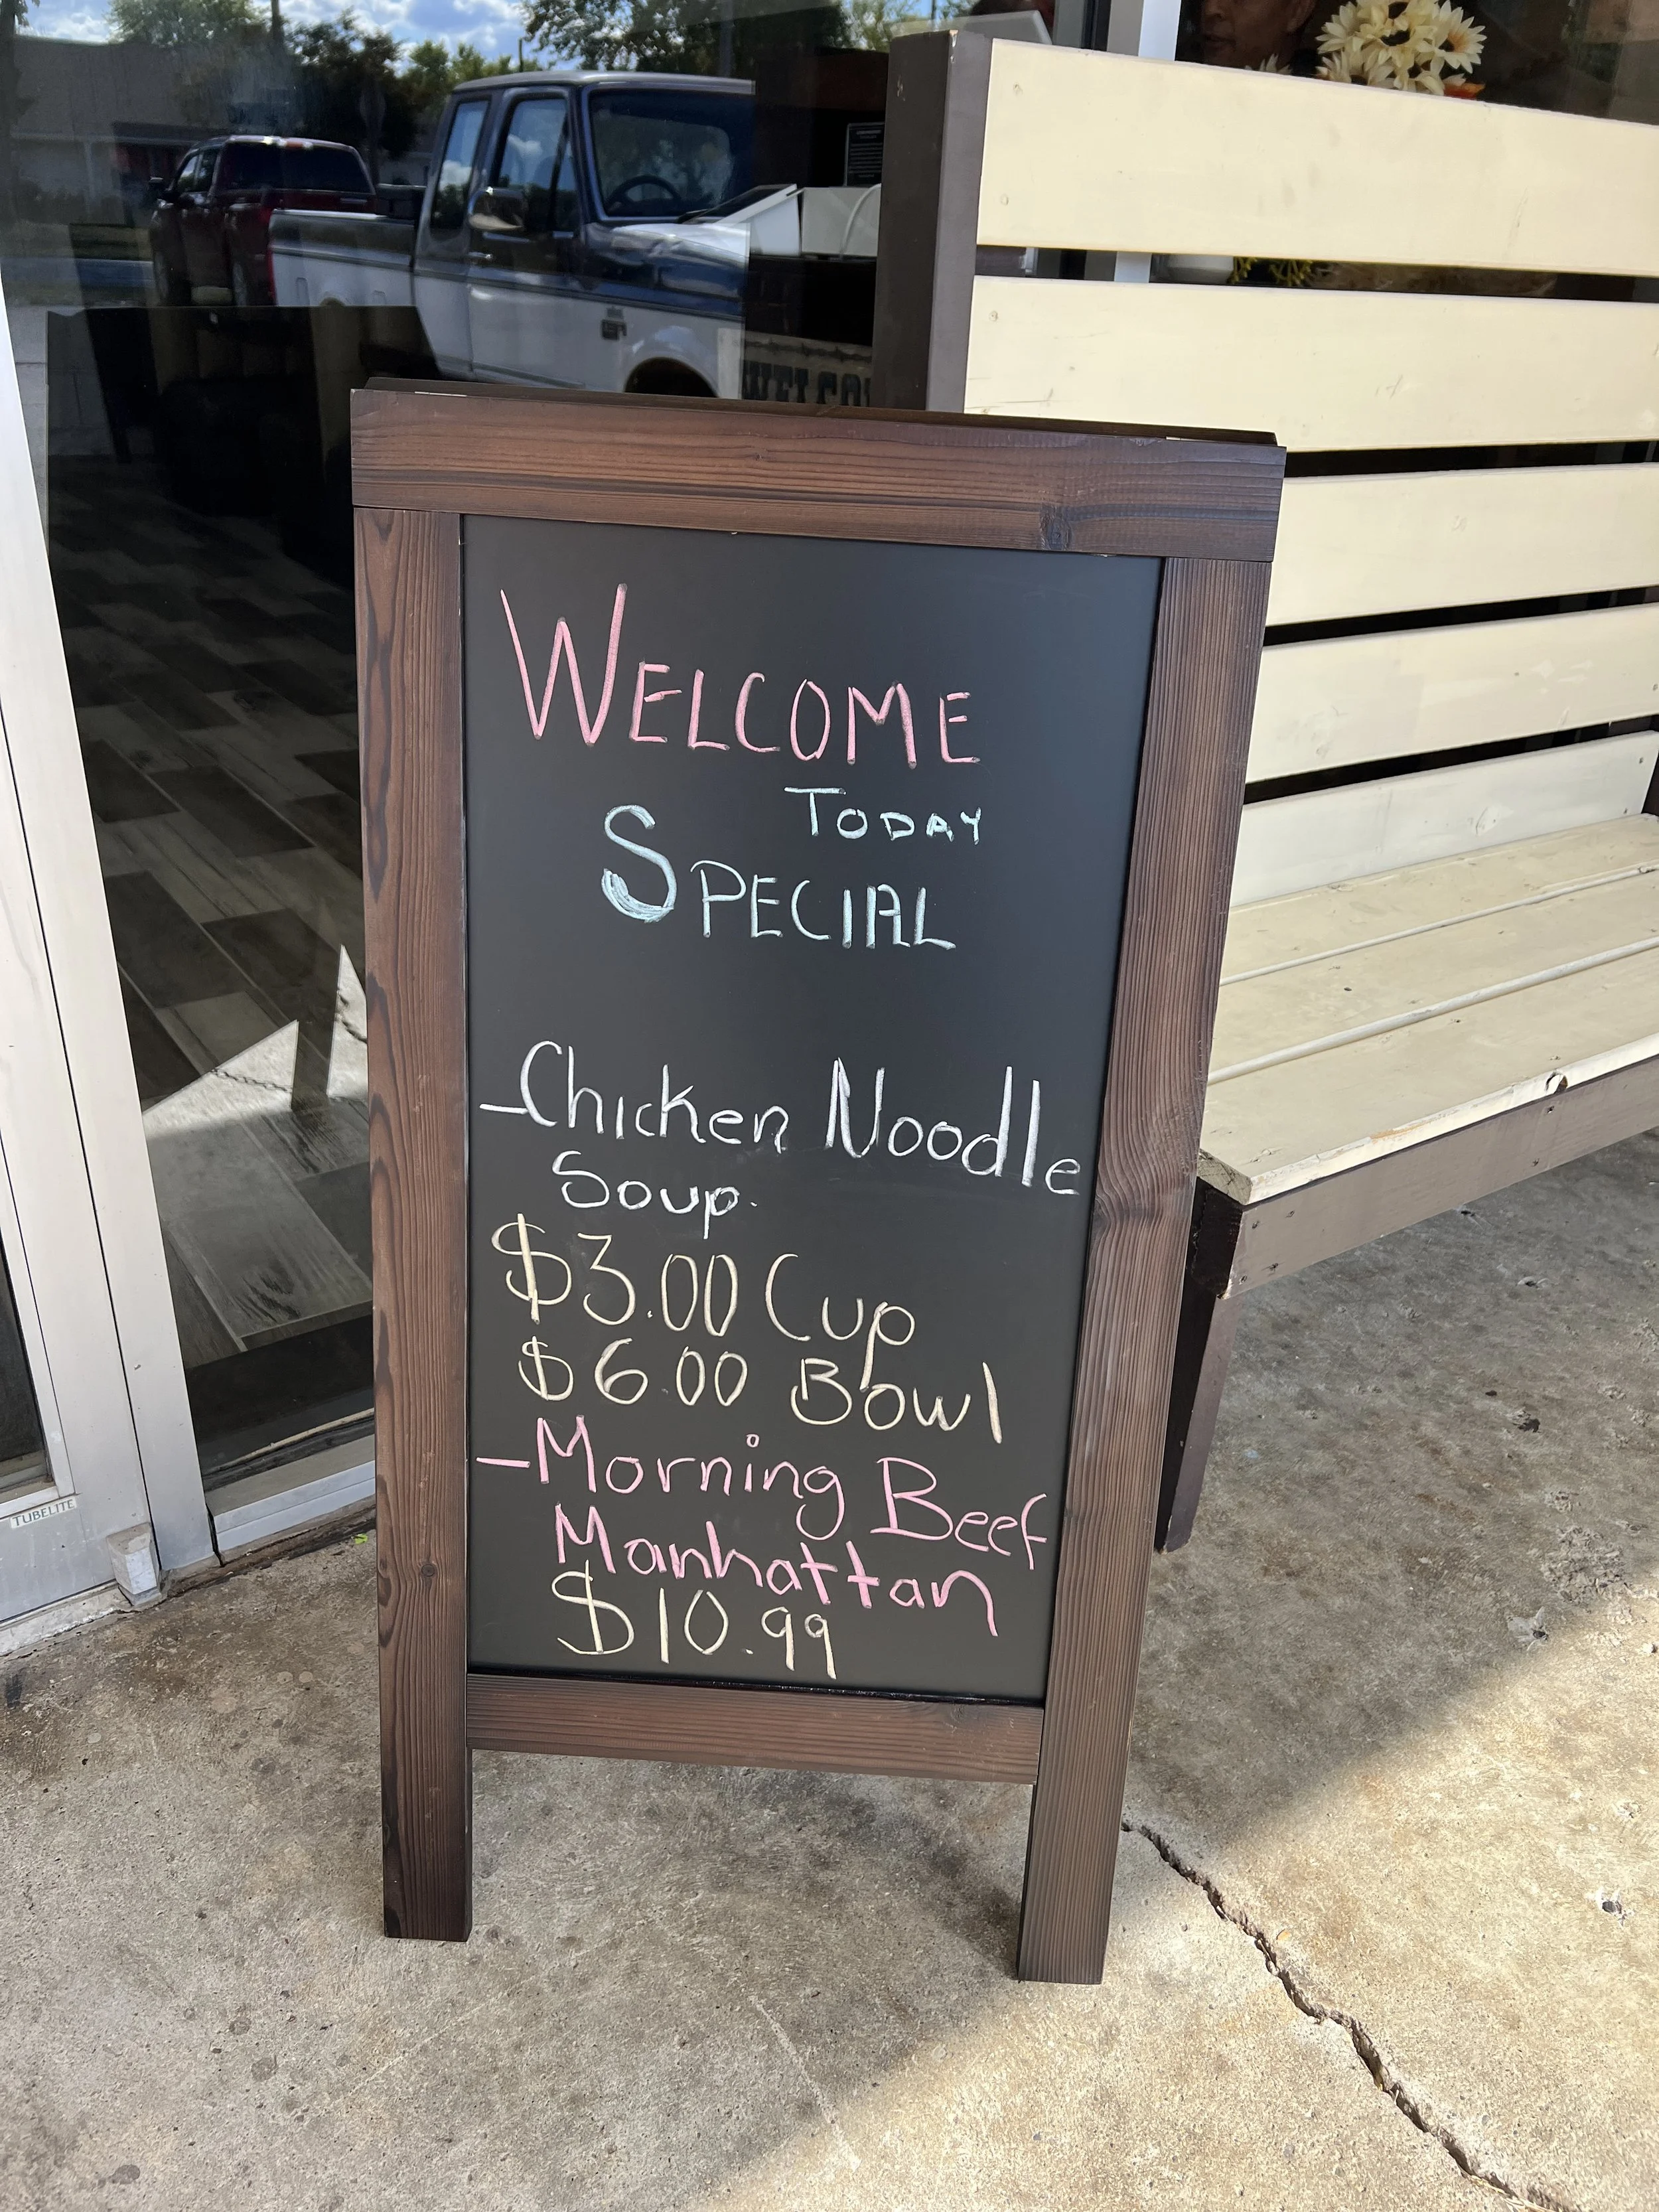 WELCOME
TODAY
SPECIAL
-Chicken Noodle
Soup.
$3.00 Cup
$6.00 Bowl
-Morning Beef
Manhattan
$10.99
TUBELITE